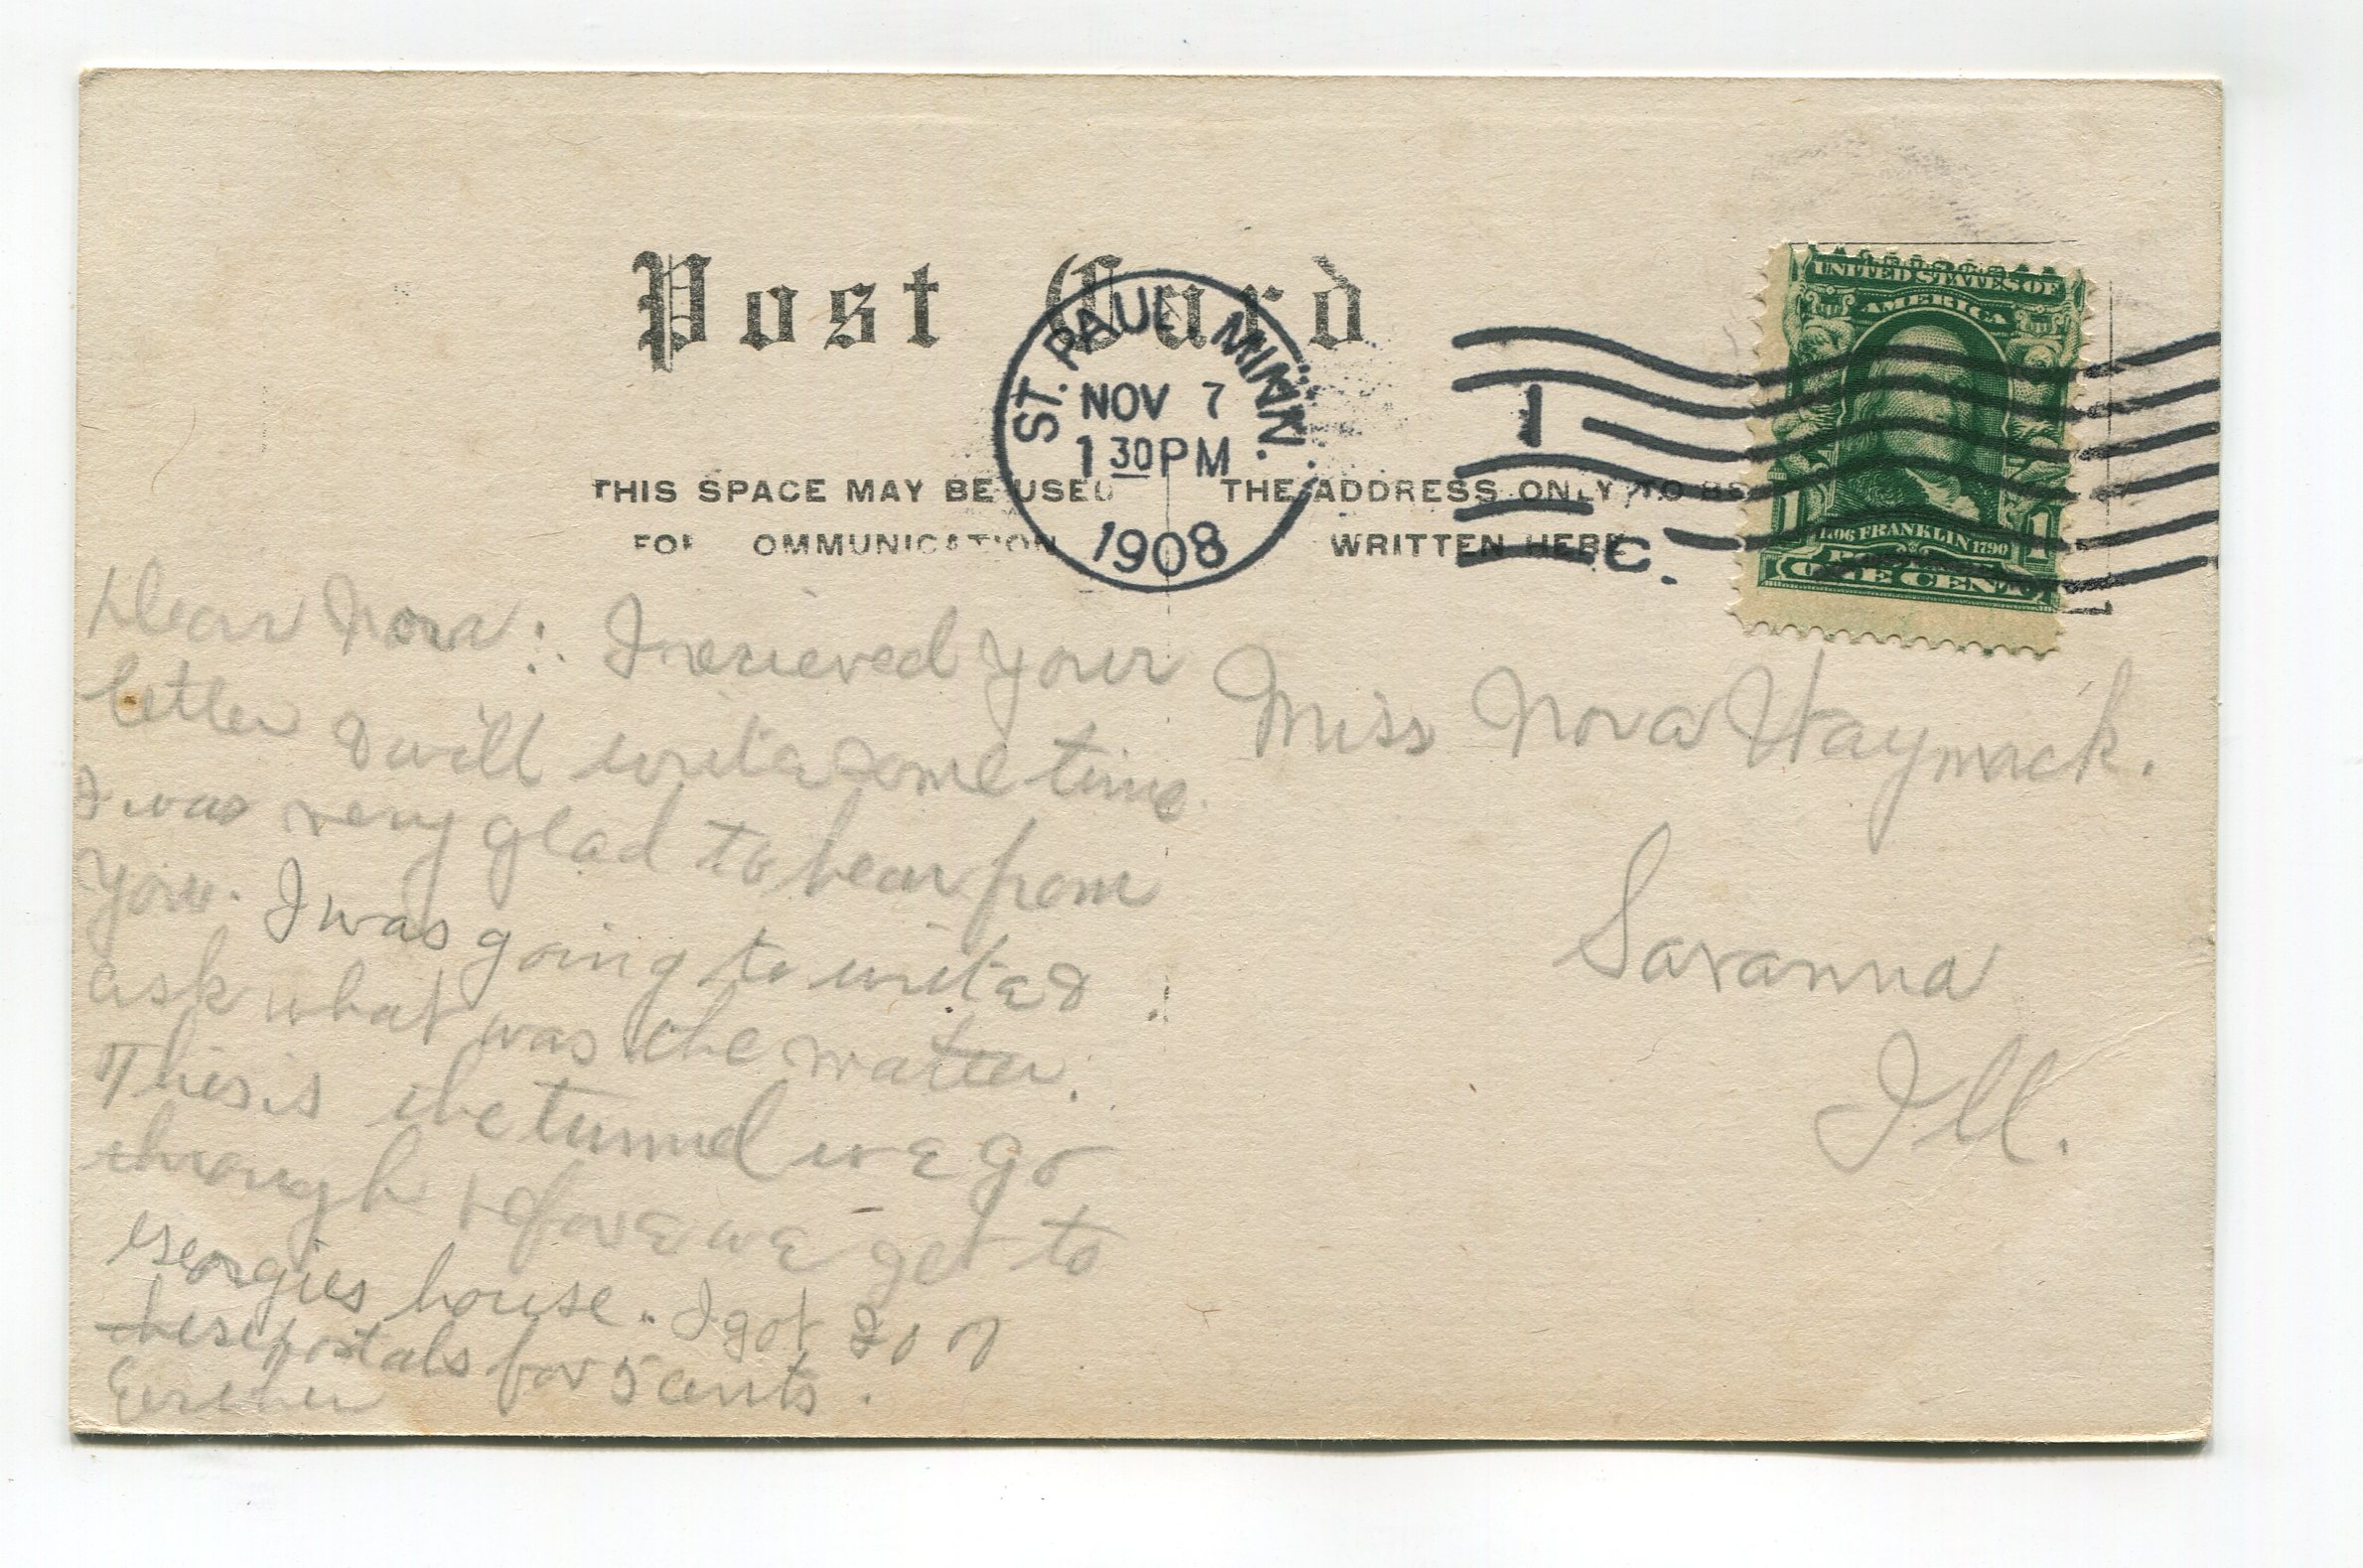 Post Card
ST. PAUL MINN.
NOV 7
1 30 PM
1908
1
C.
UNITED STATES OF
AMERICA
1706 FRANKLIN 1790
1 1
ONE CENT
THIS SPACE MAY BE USED
FOR COMMUNICATION
THE ADDRESS ONLY TO BE
WRITTEN HERE
Dear Nova: I recieved your
letter & will write some time.
I was very glad to hear from
you. I was going to write &
ask what was the matter.
This is the tunnel we go
through before we get to
Georgies house. I got 20 of
these postals for 5 cents.
Miss Nova Haymack.
Savanna
Ill.